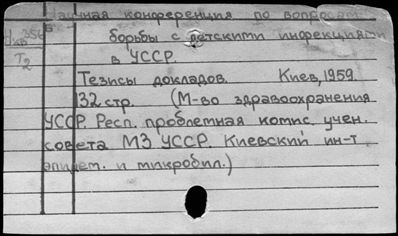 Научная конференция по вопросам
борьбы с детскими инфекциями
в УССР.
Тезисы докладов. Киев, 1959.
132 стр. (М-во здравоохранения
УССР. Респ. проблемная комис. учен.
совета МЗ УССР. Киевский ин-т
эпидем. и микробил.)
T2